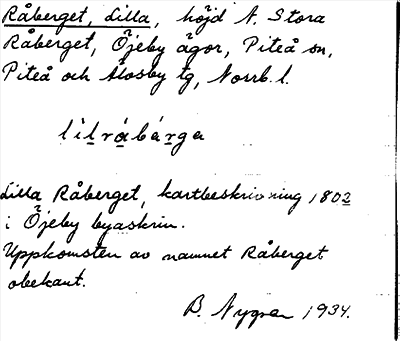 Råberget, Lilla, höjd N. Stora
Råberget, Öjeby ägor, Piteå sn,
Piteå och Älvsby tg, Norrb. l.
lìlråbárga
Lilla Råberget, kartbeskrivning 1802
i Öjeby byaskrin.
Uppkomsten av namnet Råberget
obekant.
B. Nygren 1934.